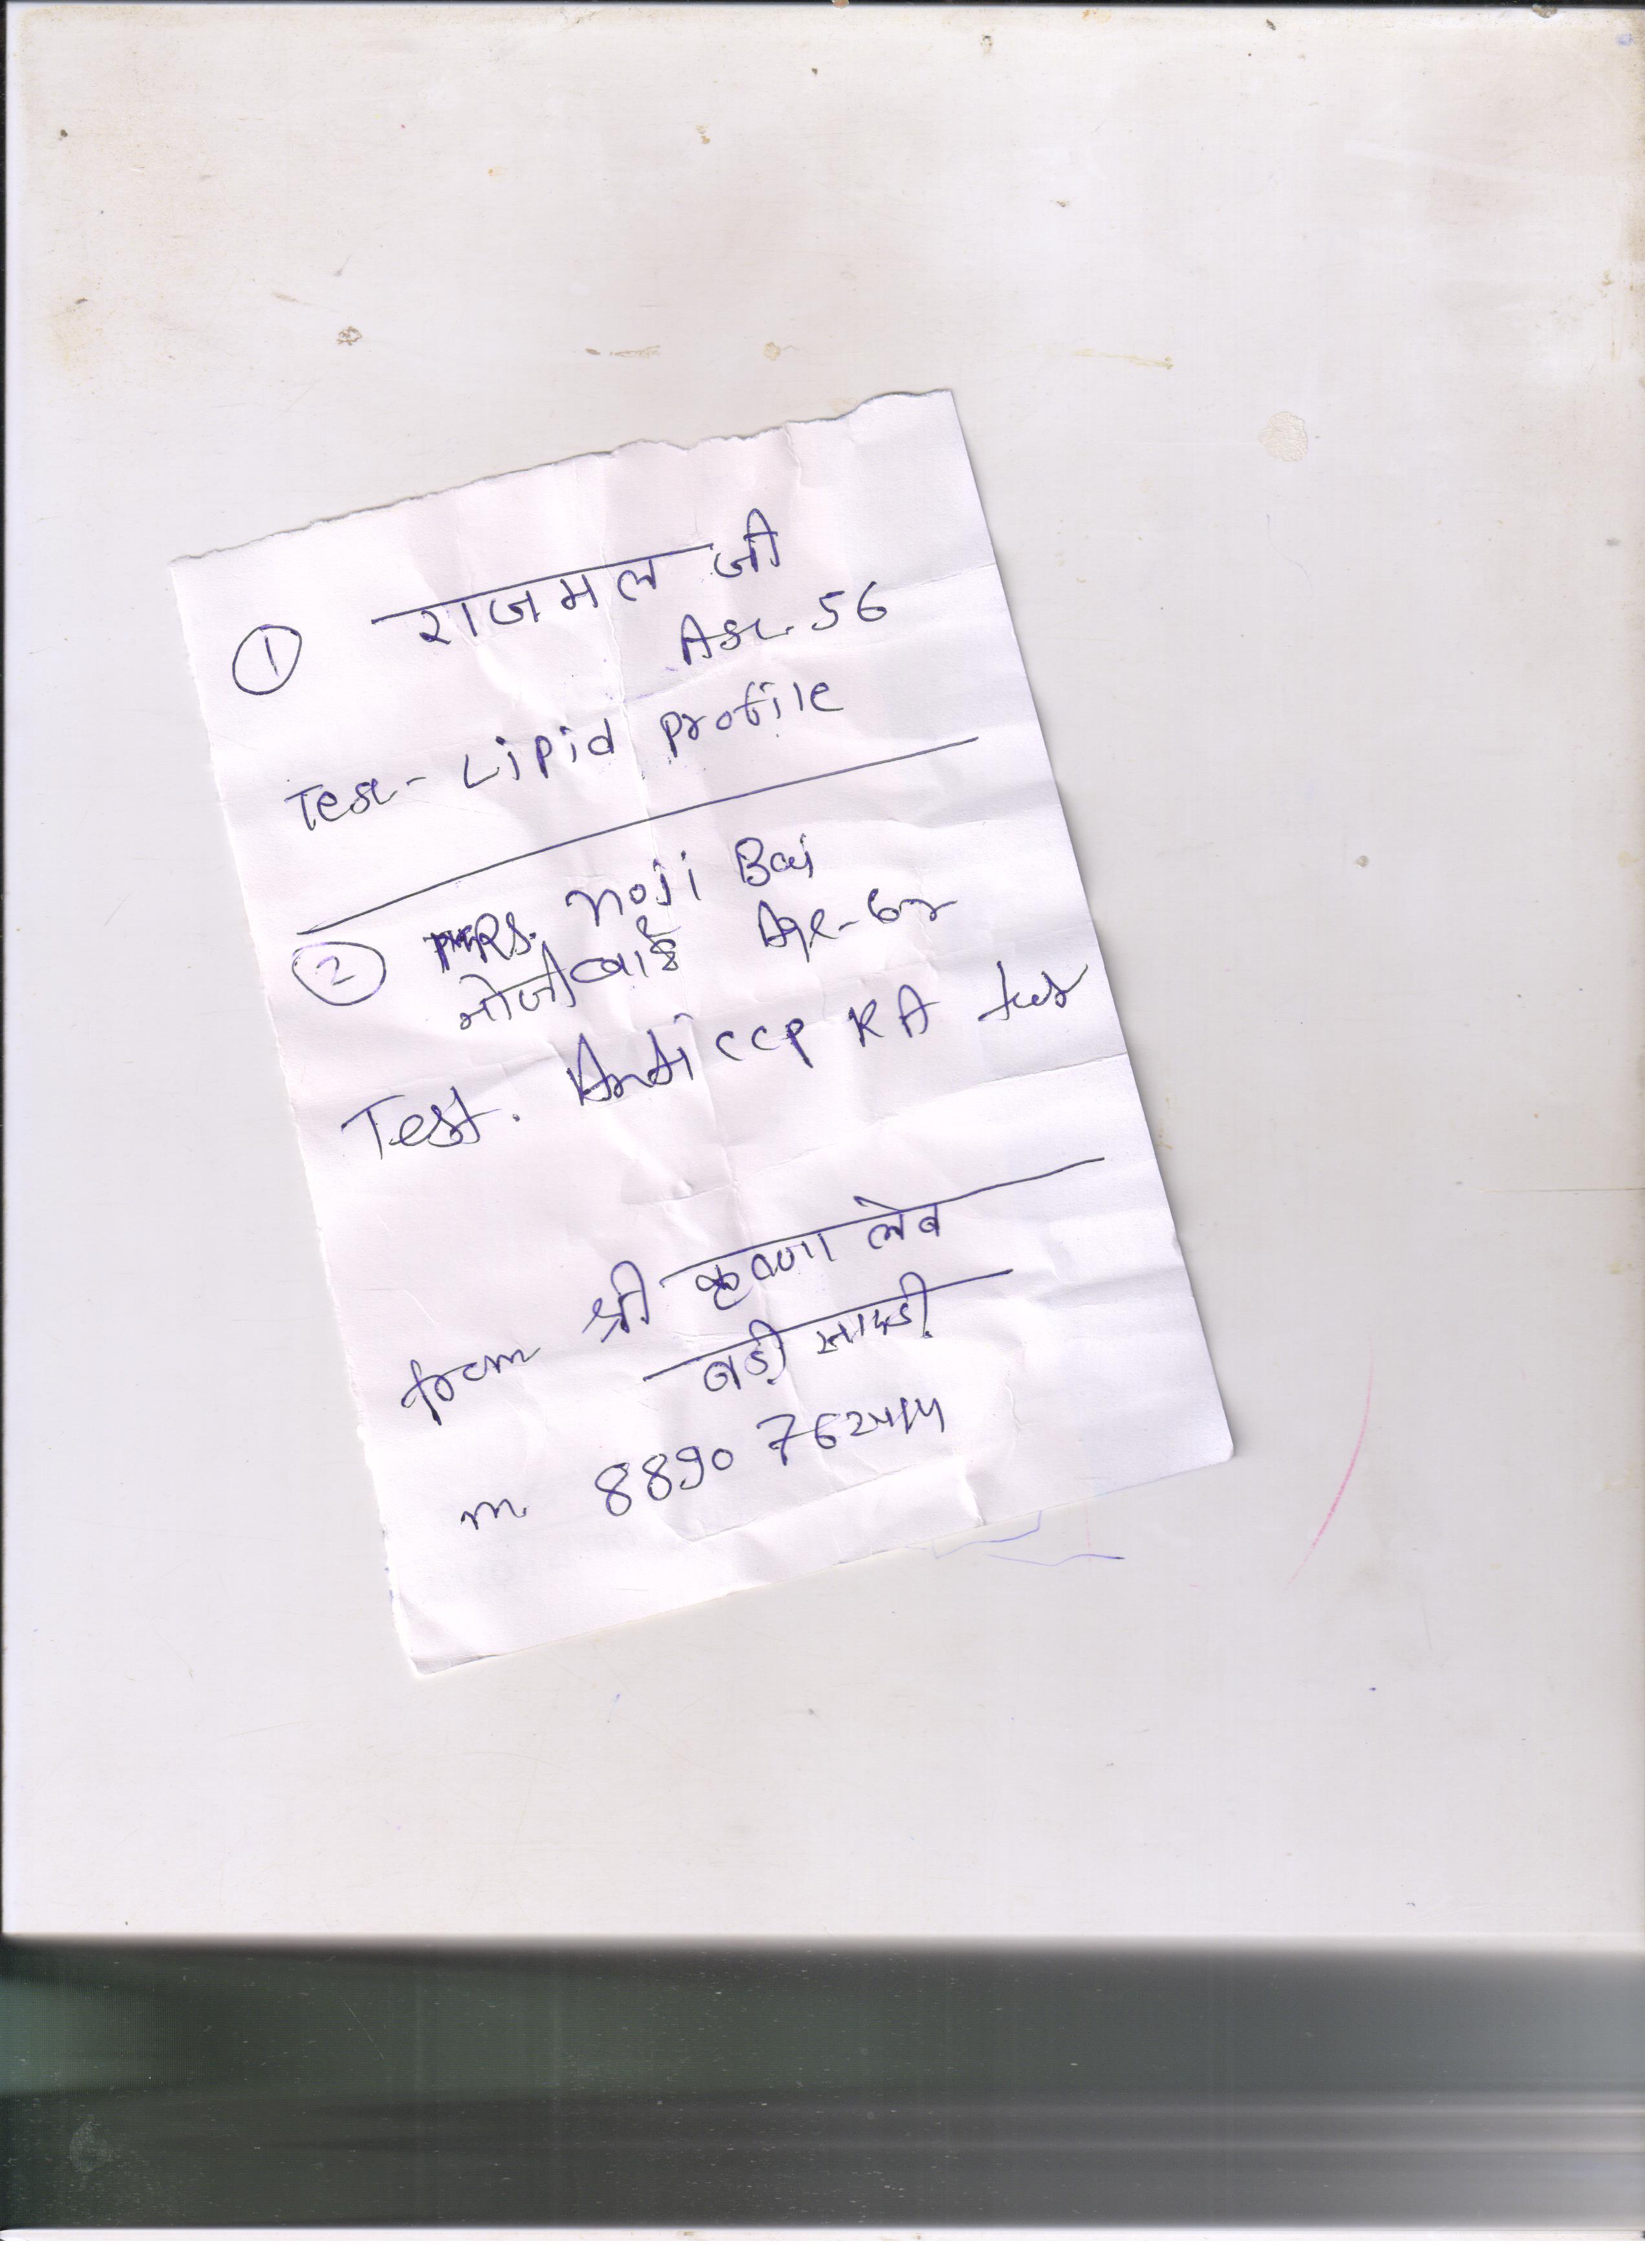 ① राजमल जी
Age. 56
Test - Lipid Profile
② MRS. Noji Bai
नोजी बाई Age-62
Test. Anti CCP RA test
from श्री कृष्णा लेब
बड़ी सादड़ी
m. 8890 762414